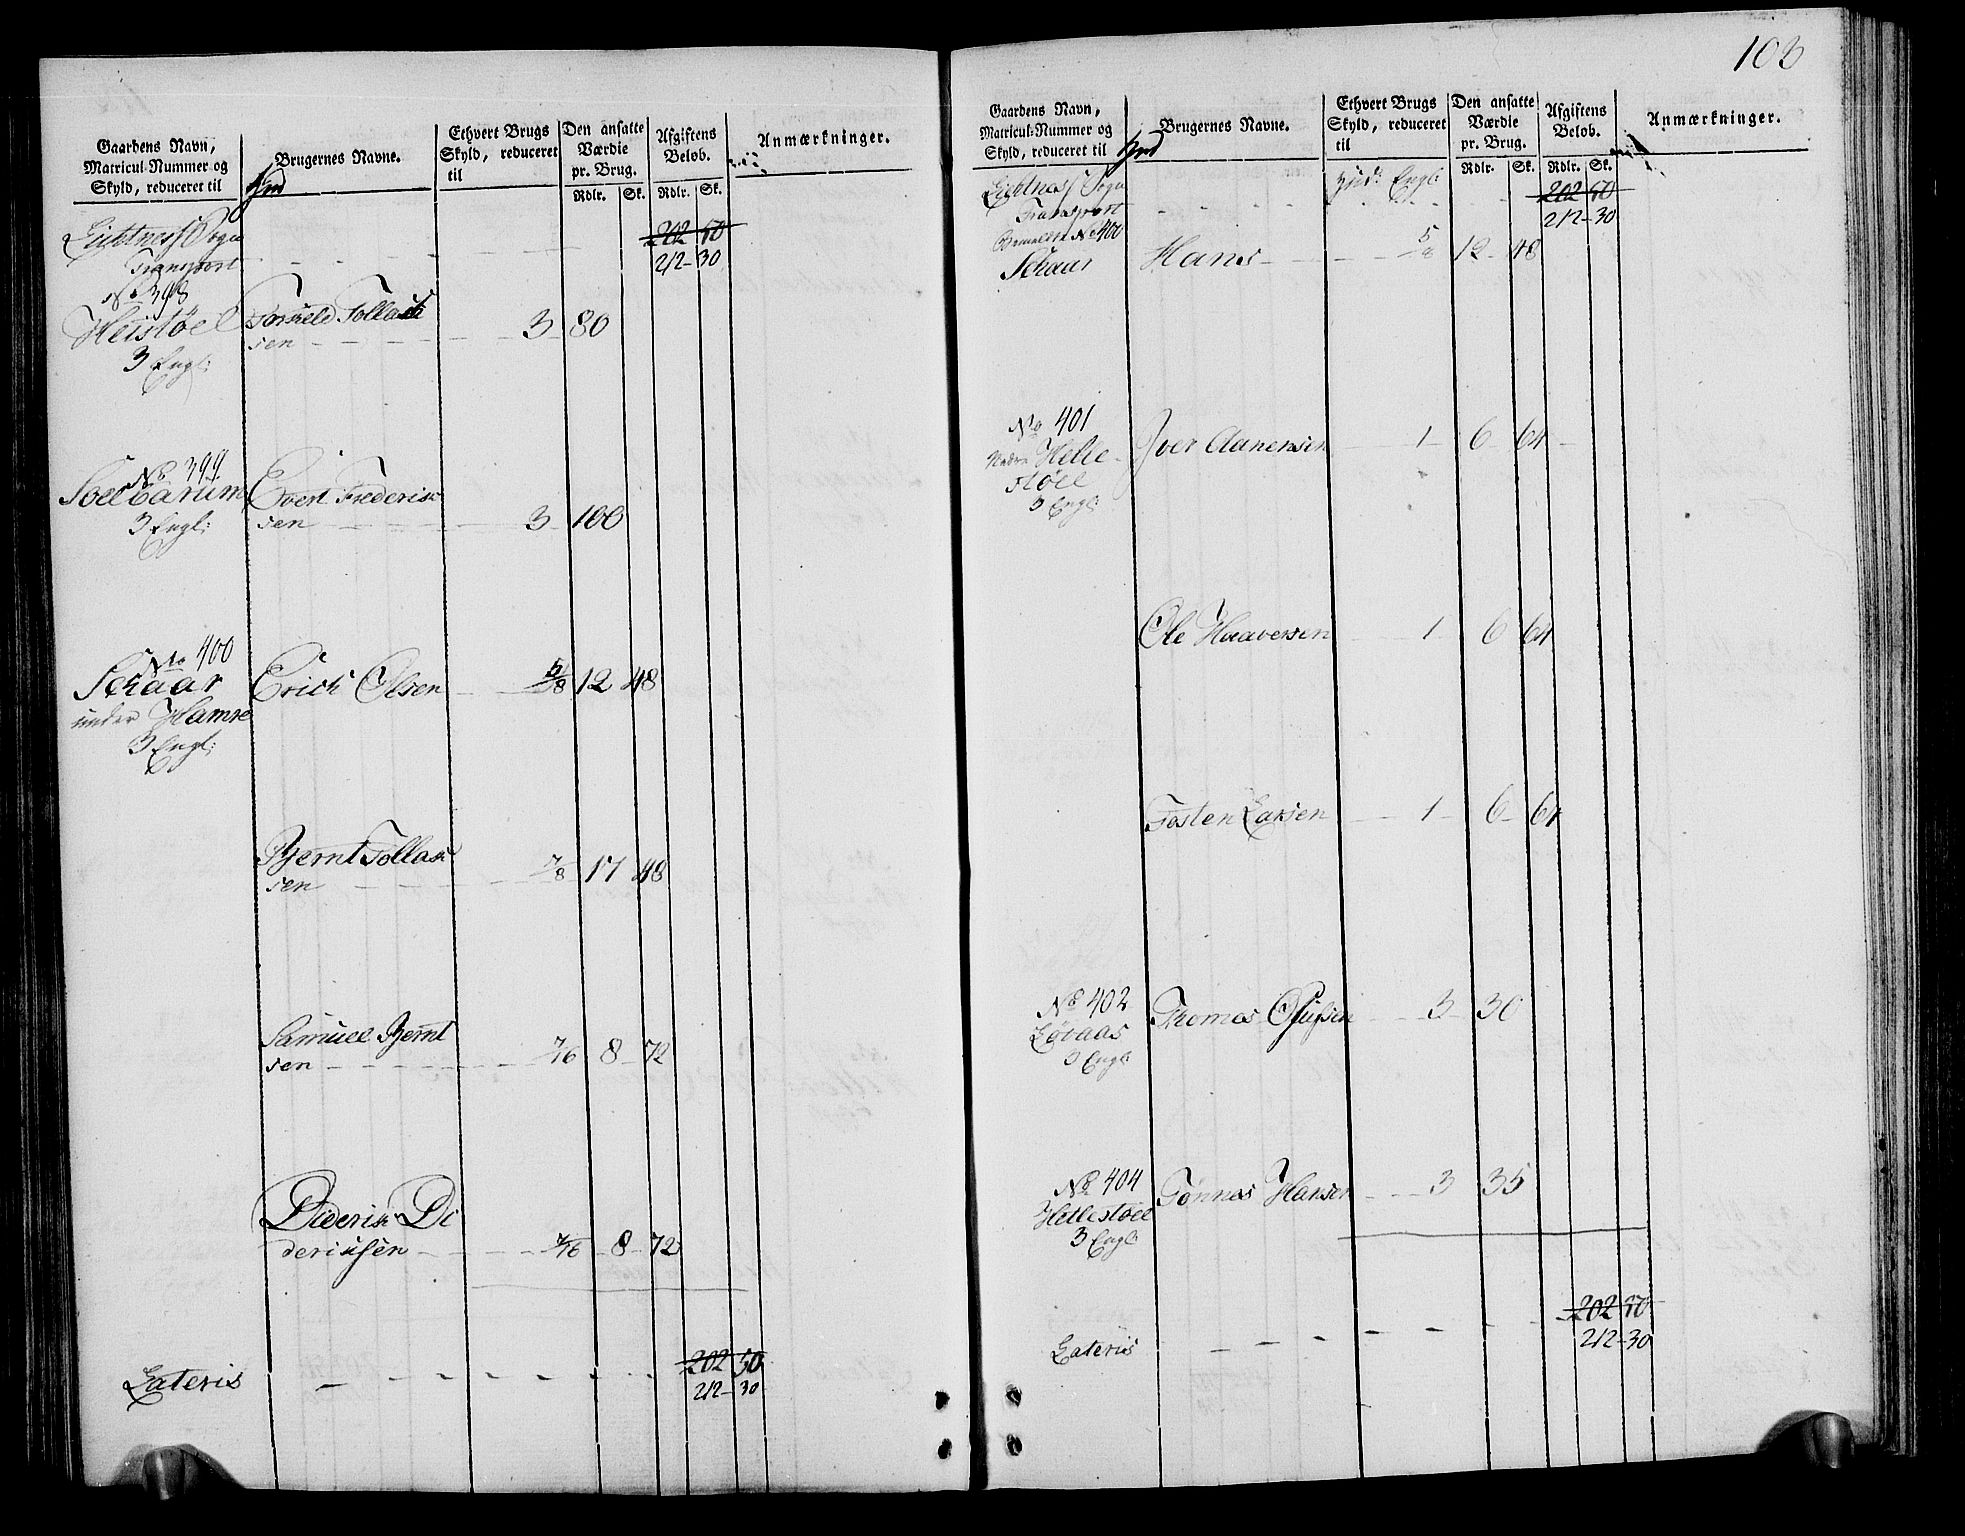 Gaardens Navn,
Matricul-Nummer og
Skyld, reduceret til
Hud
Brugernes Navne.
Ethvert Brugs
Skyld, reduceret
til
Den ansatte
Værdie
pr. Brug.
Rdlr. Sk.
Afgiftens
Beløb.
Rdlr. Sk.
Anmærkninger.
Sogn
Transport - - - - 202 50
212 - 30
No 398
Heistøel Torkeld Tollack
sen - - - - 3 80
3 Engl:
No 399
Evert Frederik
sen - - - 3 100
3 Engl:
No 400
Schaar Erich Olsen - - 5/8 12 48
under Hamre
3 Engl:
Bernt Tollak
sen - - - - 7/8 17 48
Samuel Bernt
sen - - - - 7/16 8 - 72
Diderik Di
deriksen - - - - 7/16 - 8 - 72
Lateris - - - - 202 50
212 - 30
103
Gaardens Navn,
Matricul-Nummer og
Skyld, reduceret til
Hud
Brugernes Navne.
Ethvert Brugs
Skyld, reduceret
til
Den ansatte
Værdie
pr. Brug.
Rdlr. Sk.
Afgiftens
Beløb.
Rdlr. Sk.
Anmærkninger.
Sogn Hud: Engl:
Transport - - - - 202 50
212 - 30
No 400
Schaar Hans - - - 5/8 12 - 48
No 401
Nedre Helle- Iver Aanensen - 1 - 6 - 64 -
støel
3 Engl:
Ole Haaversen - 1 - 6 64
Tosten Larsen - 1 - 6 - 64
No 402
Løvaas Thomas Olufsen - - 3 - 30
3 Engl:
No 404
Hellestøel Tønnes Hansen - - 3 35
3 Engl:
Lateris - - - - 202 50
212 - 30